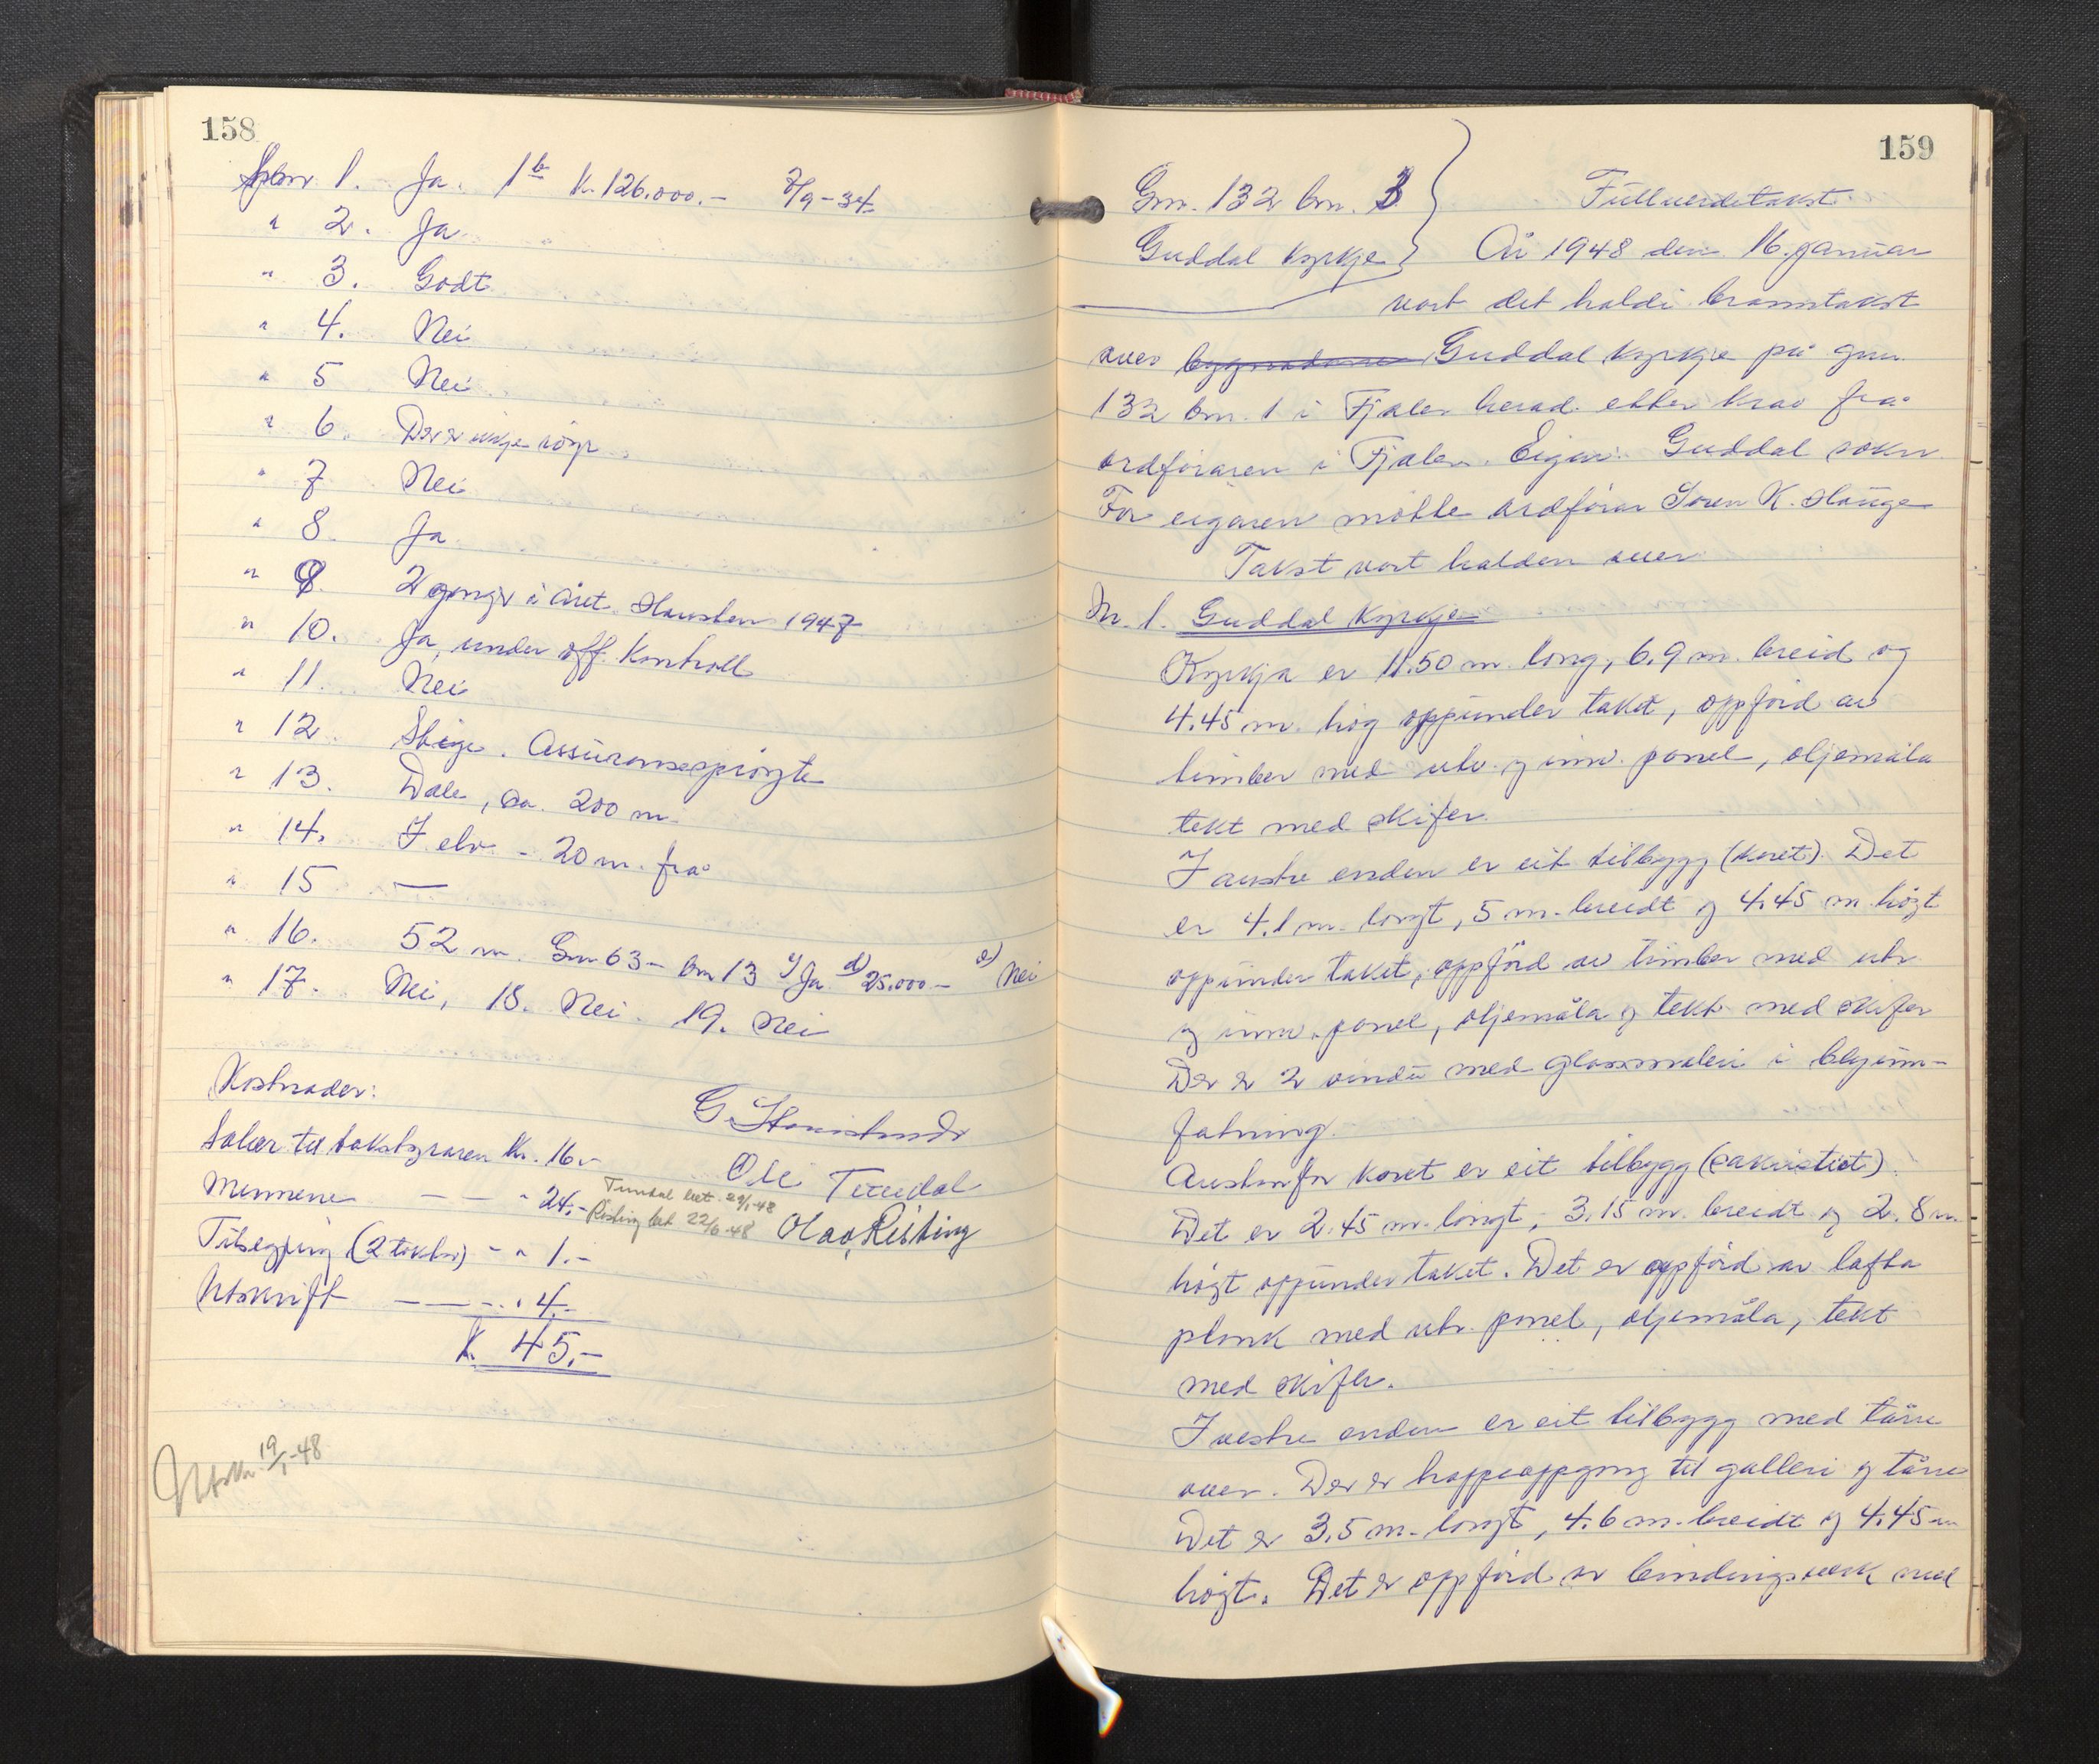 158
Spm 1. Ja. 1b K. 126.000.- 7/9-34.
" 2. Ja
" 3. Godt
" 4. Nei
" 5 Nei
" 6. Der er ikkje
" 7 Nei
" 8. Ja
" 9. 2 gonger i året. Hausten 1947
" 10. Ja, under off. kontroll
" 11. Nei
" 12. Stige. Assuransesprøyte
" 13. Dale, ca. 200 m.
" 14. I elv - 20 m. frå
" 15 —
" 16. 52 m. Gnr 63 - bnr 13 c) Ja d) 25.000.- e) Nei
" 17. Nei, 18. Nei. 19. Nei
Kostnader:
Salær til takstyraren kr. 16.-
Mennene — — " 24.-
Tilsegjing (2 takstm) - " 1.-
Utskrift — — - " 4.-
K. 45.-
Ole Tundal
Tundal bet. 29/1-48
Risting bet 22/6-48
Olav Risting
Utskr. 19/1-48
159
Gnr. 132 bnr. 3
Guddal kyrkje
Fullverdetakst
År 1948 den 16. januar
vart det haldi branntakst
over bygnadane Guddal kyrkje på gnr.
132 bnr. 1 i Fjaler herad etter krav frå
ordføraren i Fjaler. Eigar: Guddal sokn
For eigaren møtte ordførar Søren K. Hauge
Takst vart halden over
Nr. 1. Guddal kyrkje
Kyrkja er 11.50 m. long, 6.9 m. breid og
4.45 m. høg oppunder taket, oppförd av
timber med utv. og innv. panel, oljemåla
tekt med skifer.
I austre enden er eit tilbygg (koret). Det
er 4.1 m. langt, 5 m. breidt og 4.45 m høgt
oppunder taket, oppförd av timber med utv.
og innv. panel, oljemåla og tekt med skifer
Der er 2 vindu med glassmaleri i blyinn-
fatning.
Austanfor koret er eit tilbygg (sakristiet).
Det er 2.45 m. longt, 3.15 m. breidt og 2.8 m.
høgt oppunder taket. Det er oppförd av lafta
plank med utv. panel, oljemåla, tekt
med skifer.
I vestre enden er eit tilbygg med tårn
over. Der er trappeoppgong til galleri og tårn
Det er 3.5 m. longt, 4.6 m. breidt og 4.45 m
høgt. Det er oppförd av bindingsverk med